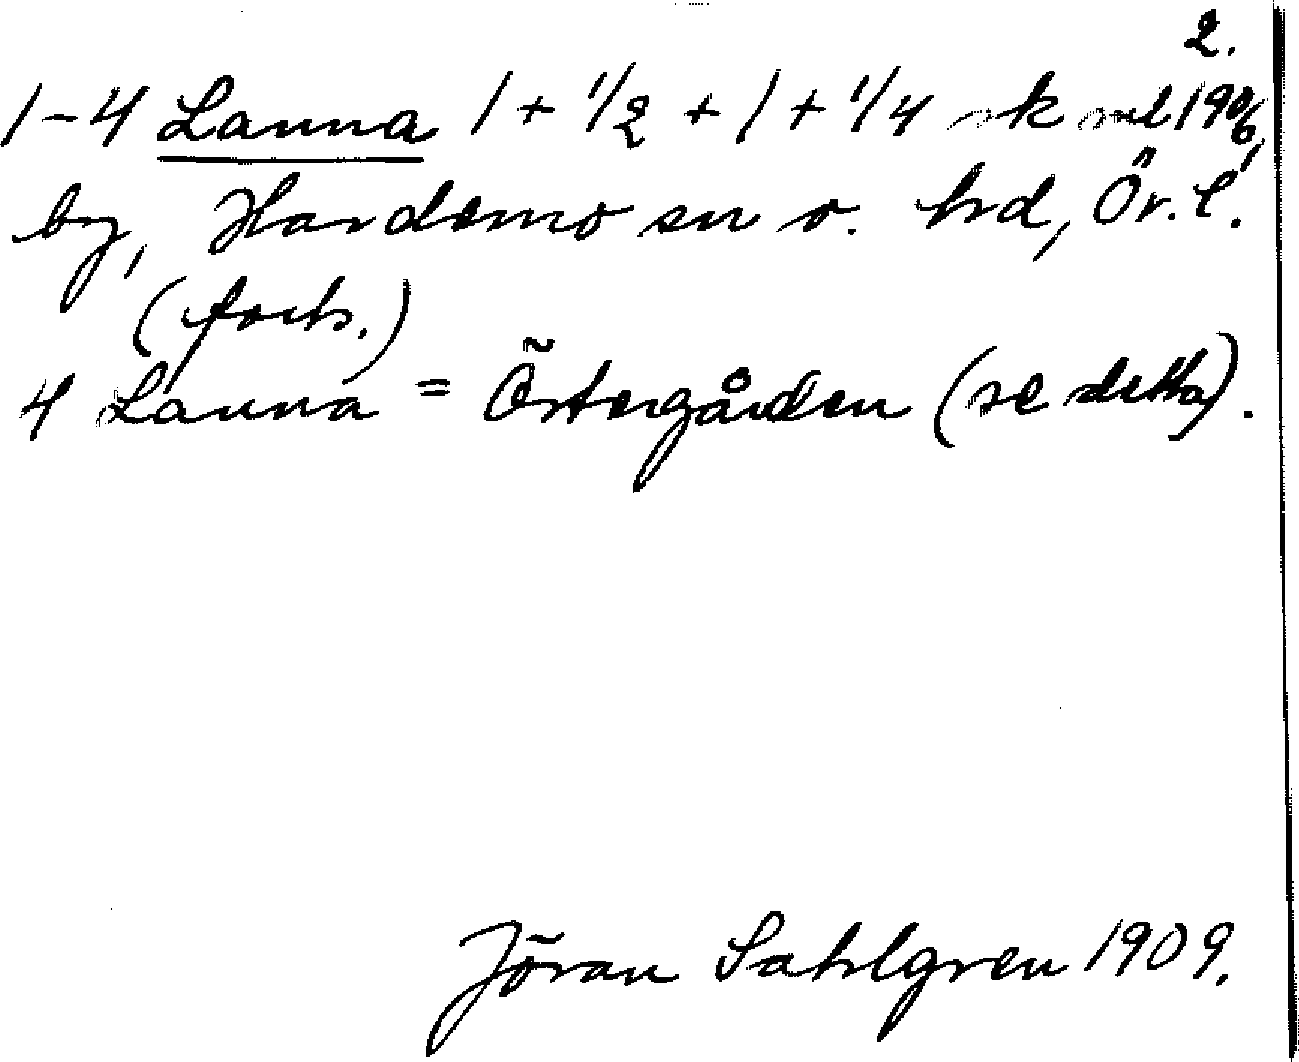 2.
1-4 Lanna 1 + 1/2 + 1 + 1/4 sk sml 1906,
by, Hardemo sn o. hrd, Ör. l.
(forts.)
4 Lanna = Östergården (se detta).
Jöran Sahlgren 1909.